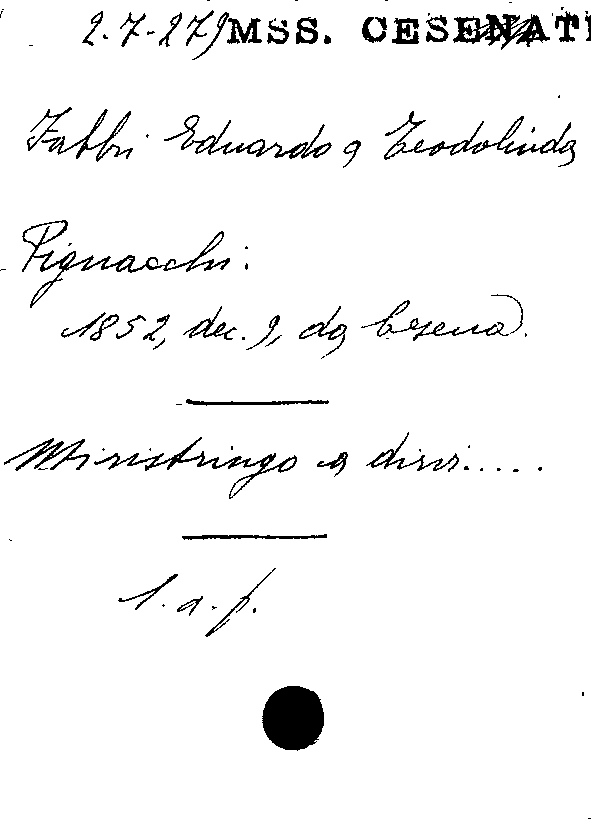 2.7-279 MSS. CESENATI
Fabbri Eduardo a Teodolinda
Pignacchi:
1852, dec. 9, da Cesena.
Mi ristringo a dirvi.....
l. a. f.